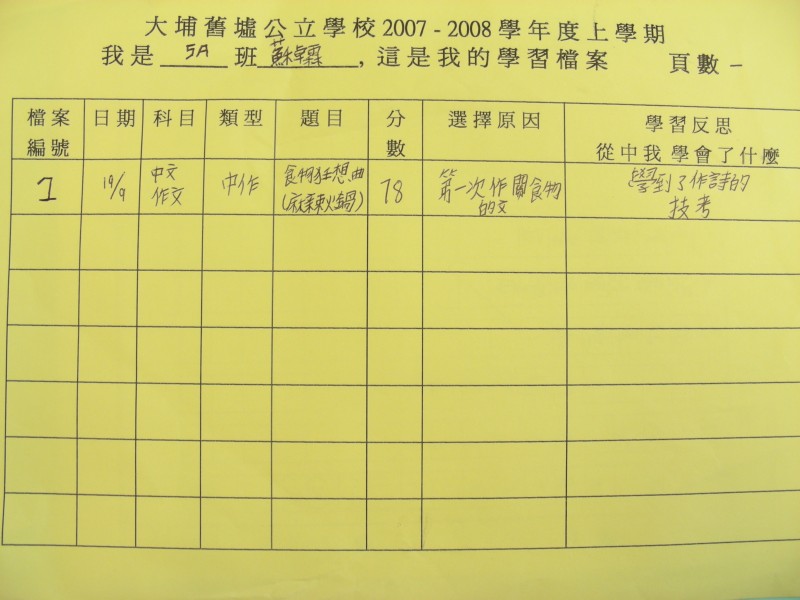 大埔舊墟公立學校 2007 - 2008 學年度上學期
我是 5A 班 蘇卓霖, 這是我的學習檔案 頁數 一
檔案編號 日期 科目 類型 題目 分數 選擇原因 學習反思
從中我學會了什麼
1 19/9 中文作文 中作 食物狂想曲 (麻辣火鍋) 78 第一次作關食物的文 學到了作詩的技考